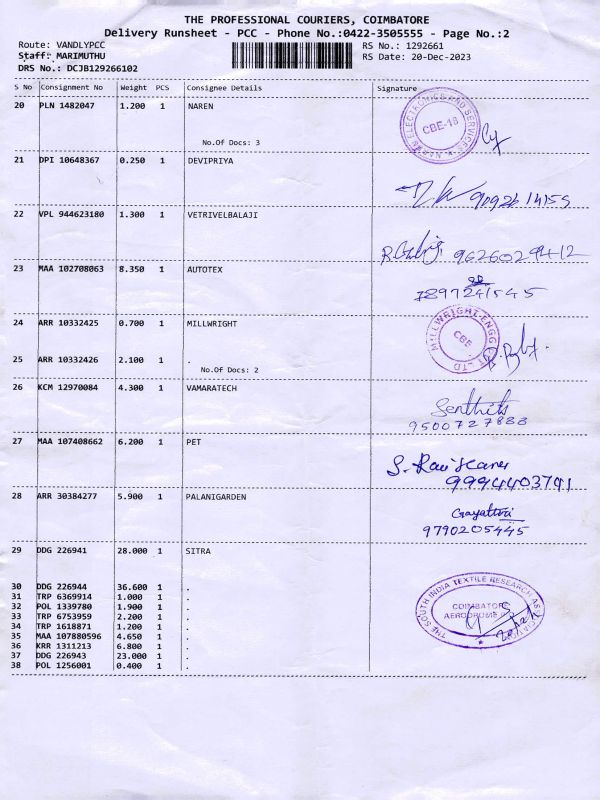 THE PROFESSIONAL COURIERS, COIMBATORE
Delivery Runsheet - PCC - Phone No.:0422-3505555 - Page No.:2
Route: VANDLYPCC RS No.: 1292661
Staff: MARIMUTHU RS Date: 20-Dec-2023
DRS No.: DCJB129266102
S No Consignment No Weight PCS Consignee Details Signature
20 PLN 1482047 1.200 1 NAREN
NAREN ELECTRONICS AND SERVICES CBE-18
No.Of Docs: 3
21 DPI 10648367 0.250 1 DEVIPRIYA
22 VPL 944623180 1.300 1 VETRIVELBALAJI
9626029412
23 MAA 102708063 8.350 1 AUTOTEX
7897241545
24 ARR 10332425 0.700 1 MILLWRIGHT
MILLWRIGHT ENGG PVT LTD CBE
25 ARR 10332426 2.100 1 .
No.Of Docs: 2
26 KCM 12970084 4.300 1 VAMARATECH
9500727888
27 MAA 107408662 6.200 1 PET
9994403791
28 ARR 30384277 5.900 1 PALANIGARDEN
Gayathri
9790205445
29 DDG 226941 28.000 1 SITRA
30 DDG 226944 36.600 1 .
31 TRP 6369914 1.000 1 .
32 POL 1339780 1.900 1 .
33 TRP 6753959 2.200 1 .
34 TRP 1618871 1.200 1 .
35 MAA 107880596 4.650 1 .
36 KRR 1311213 6.800 1 .
37 DDG 226943 23.000 1 .
38 POL 1256001 0.400 1 .
THE SOUTH INDIA TEXTILE RESEARCH ASSOCIATION
COIMBATORE
AERODROME